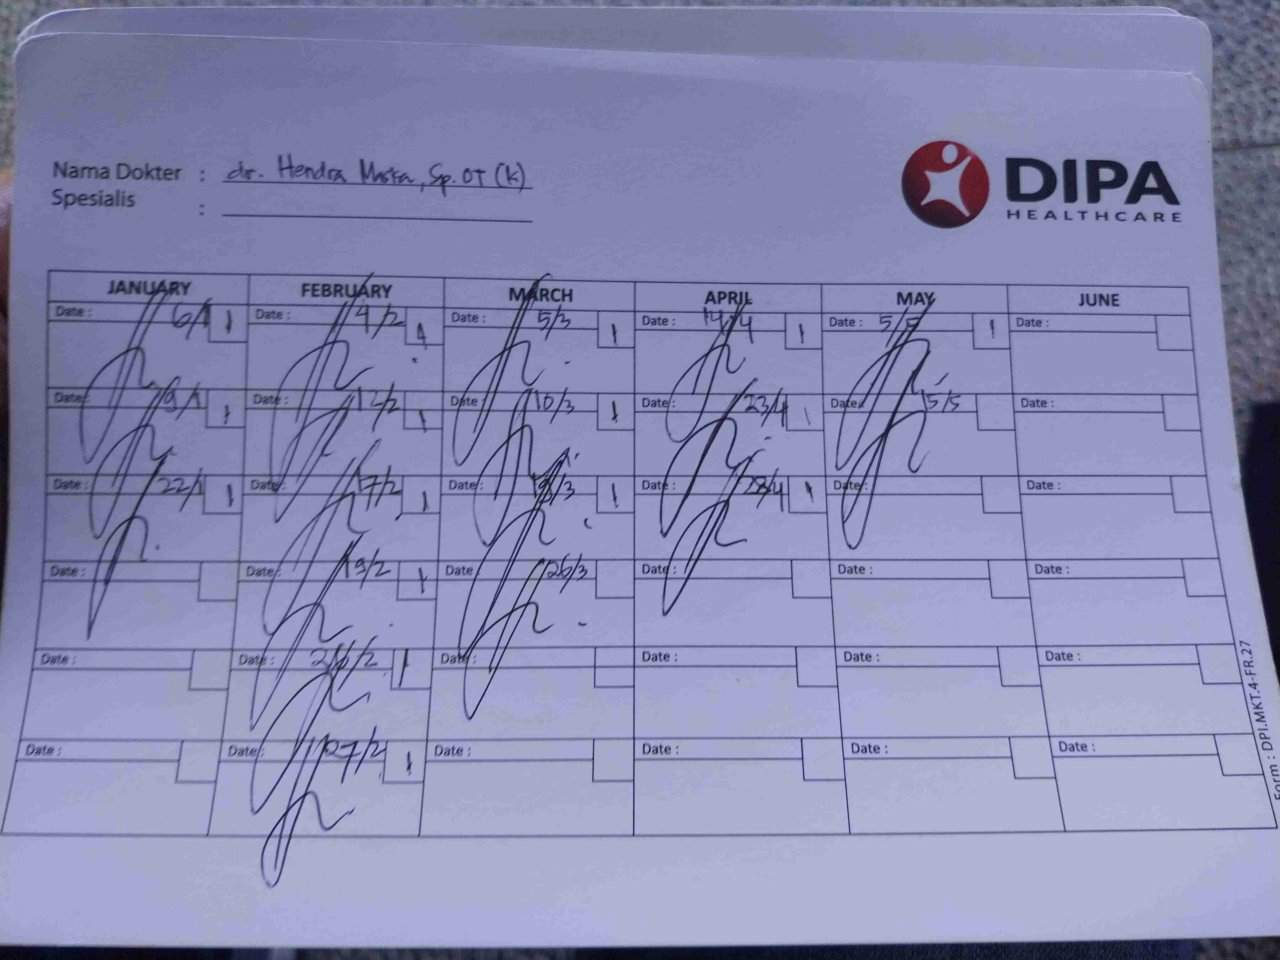 Nama Dokter : dr. Hendra , Sp.OT (K)
Spesialis :
DIPA
HEALTHCARE
JANUARY FEBRUARY MARCH APRIL MAY JUNE
Date : 6/1 1 Date : 4/2 1 Date : 5/3 1 Date : 14/4 1 Date : 5/5 1 Date :
Date : 9/1 1 Date : 12/2 1 Date : 10/3 1 Date : 23/4 1 Date : 15/5 Date :
Date : 22/1 1 Date : 17/2 1 Date : 1 Date : 28/4 1 Date : Date :
Date : Date : 19/2 1 Date 26/3 Date : Date : Date :
Date : Date : 26/2 1 Date : Date : Date : Date :
Date : Date : 27/2 1 Date : Date : Date : Date :
Form : DPI.MKT.4-FR.27